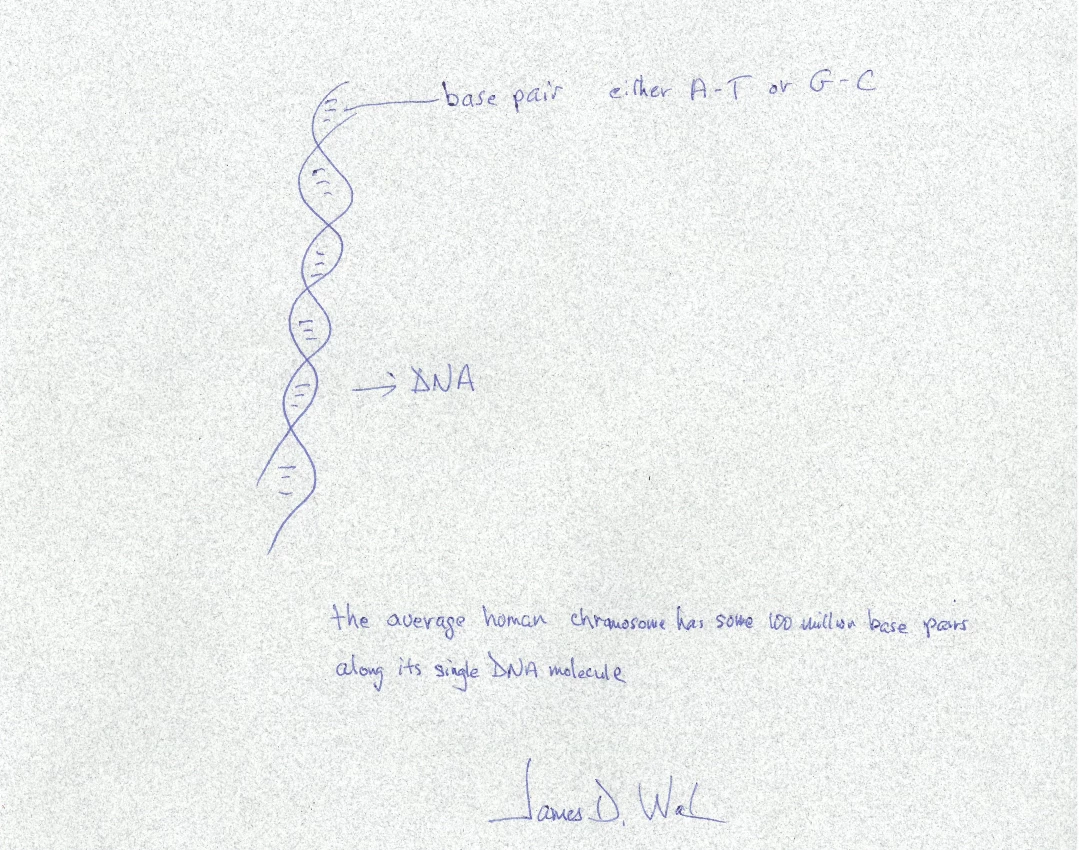 base pair either A-T or G-C
DNA
the average human chromosome has some 100 million base pairs
along its single DNA molecule
James D.